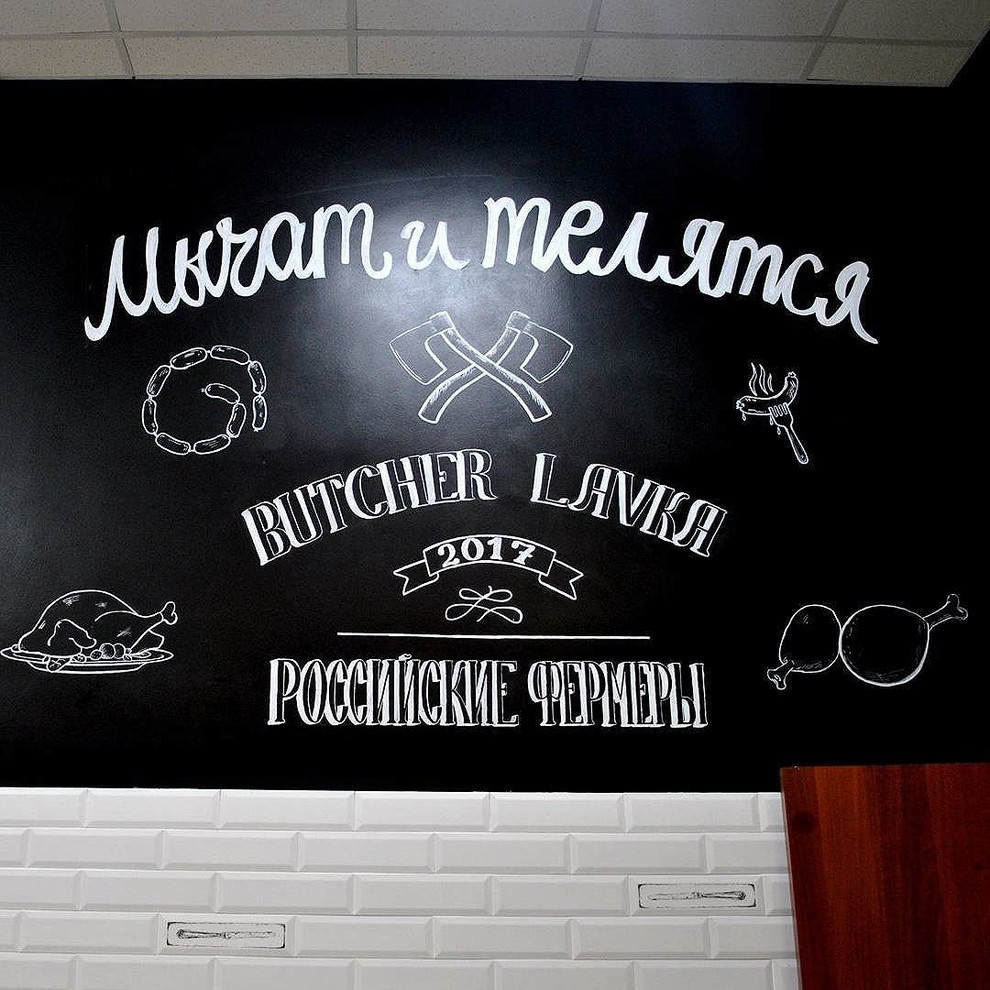 Мычат и телятся
BUTCHER LAVKA
2017
РОССИЙСКИЕ ФЕРМЕРЫ